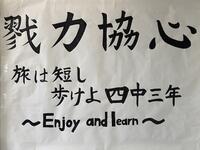 戮力協心
旅は短し
歩けよ四中三年
～Enjoy and learn～